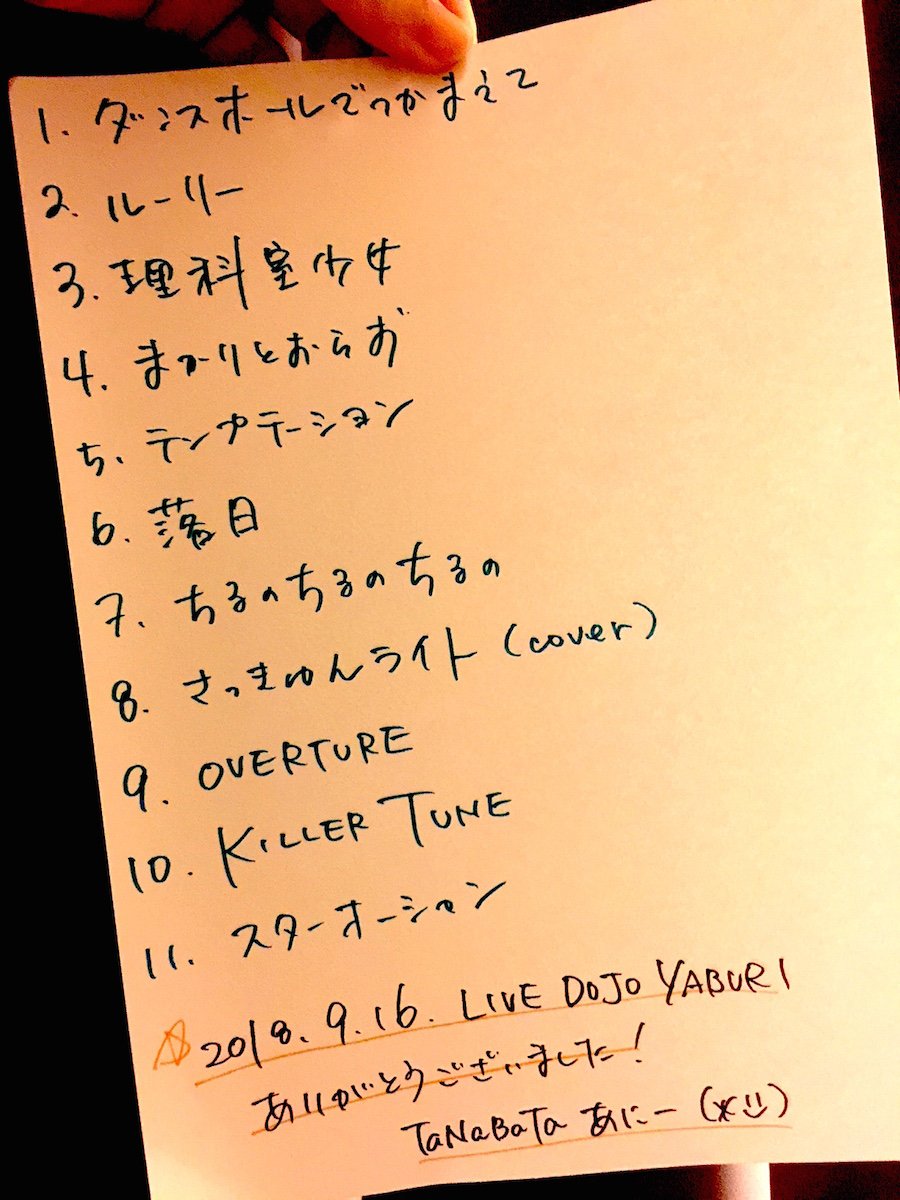 1. ダンスホールでつかまえて
2. ルーリー
3. 理科室少女
4. まかりとおらず
5. テンプテーション
6. 落日
7. ちるのちるのちるの
8. さっきゅんライト (cover)
9. OVERTURE
10. KILLER TUNE
11. スターオーシャン
☆2018.9.16. LIVE DOJO YABURI
ありがとうございました!
TaNaBaTa あにー